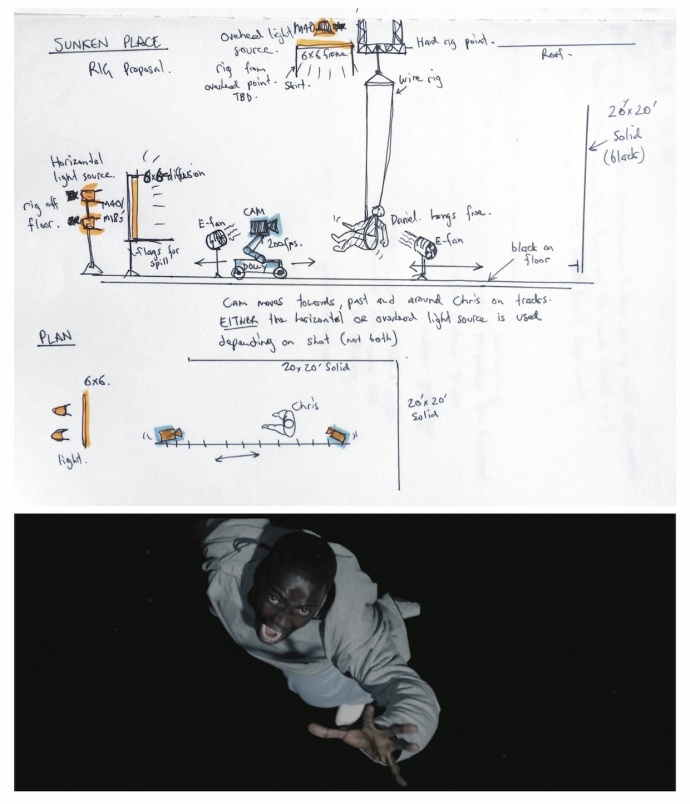 SUNKEN PLACE
RIG Proposal.
Overhead light
source.
M40
6x6 frame
rig from
overhead point.
TBD.
Skirt.
Hard rig point.
Roof.
wire rig
20' x 20'
Solid
(black)
Horizontal
light source.
6x6 difusion
rig off
floor.
M40/
M18s
flags for
spill
E-fan
CAM
200fps.
DOLLY
Daniel. hangs free.
E-fan
black on
floor
Cam moves towards, past and around Chris on tracks.
EITHER the horizontal or overhead light source is used
depending on shot (not both)
PLAN
20x20' Solid
6x6.
Chris
20'x20'
Solid
light.